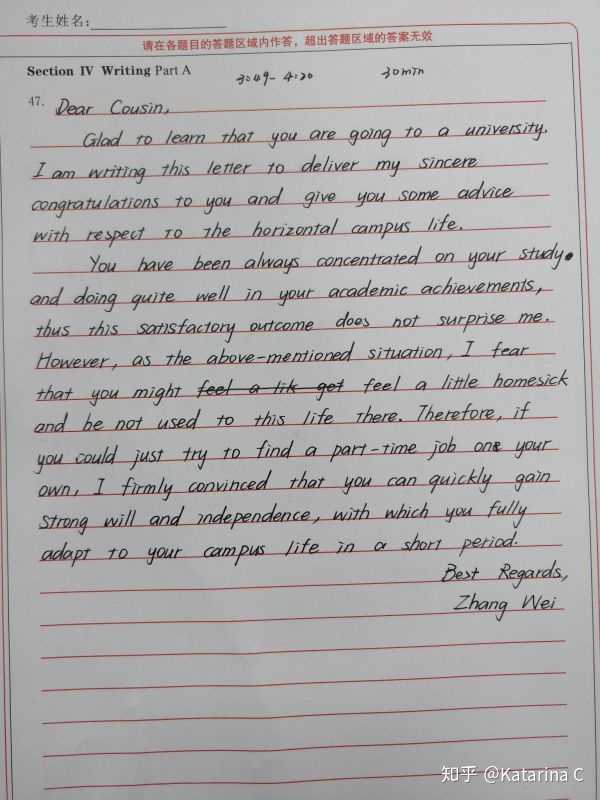 考生姓名:
请在各题目的答题区域内作答，超出答题区域的答案无效
Section IV Writing Part A
3:49-4:20 30min
47. Dear Cousin,
Glad to learn that you are going to a university.
I am writing this letter to deliver my sincere
congratulations to you and give you some advice
with respect to the horizontal campus life.
You have been always concentrated on your study.
and doing quite well in your academic achievements,
thus this satisfactory outcome does not surprise me.
However, as the above-mentioned situation, I fear
that you might feel a lik get feel a little homesick
and be not used to this life there. Therefore, if
you could just try to find a part-time job one your
own, I firmly convinced that you can quickly gain
strong will and independence, with which you fully
adapt to your campus life in a short period.
Best Regards,
Zhang Wei
知乎 @Katarina C